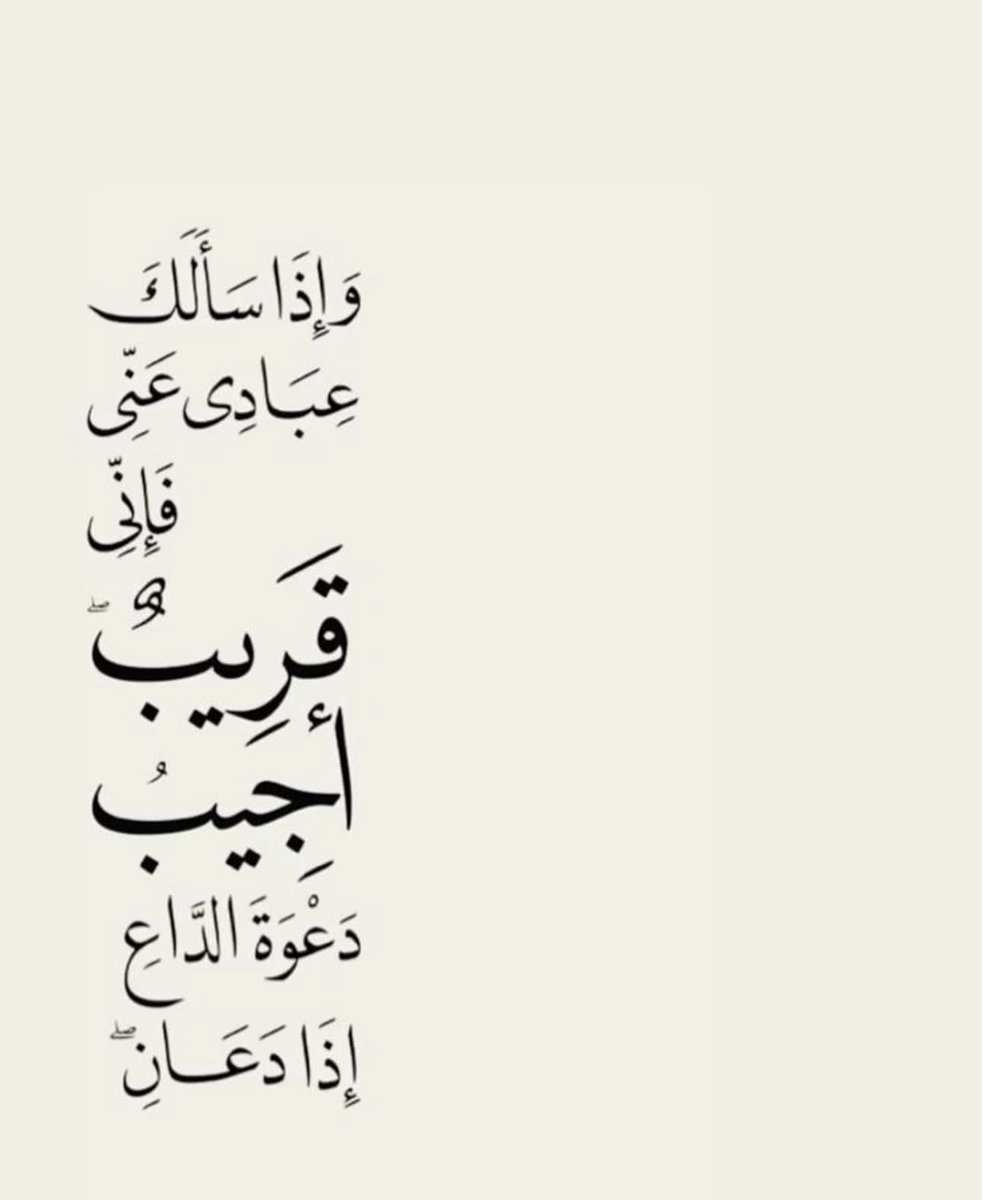 وَإِذَا سَأَلَكَ
عِبَادِى عَنِّى
فَإِنِّى
قَرِيبٌ ۖ
أُجِيبُ
دَعْوَةَ الدَّاعِ
إِذَا دَعَـانِ ۖ